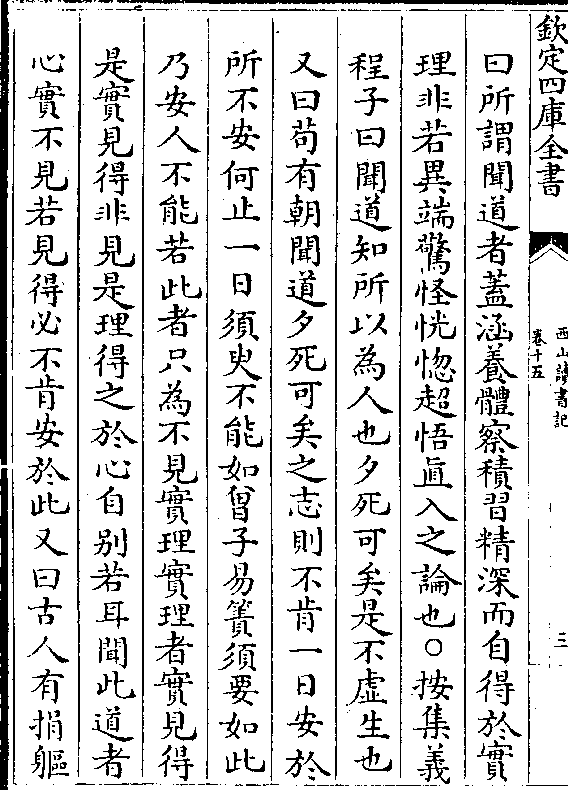 欽定四庫全書
西山讀書記
卷十五
三
曰所謂聞道者蓋涵養體察積習精深而自得於實
理非若異端驚怪恍惚超悟直入之論也○按集義
程子曰聞道知所以為人也夕死可矣是不虛生也
又曰苟有朝聞道夕死可矣之志則不肯一日安於
所不安何止一日須臾不能如曾子易簀須要如此
乃安人不能若此者只為不見實理實理者實見得
是實見得非見是理得之於心自别若耳聞此道者
心實不見若見得必不肯安於此又曰古人有捐軀